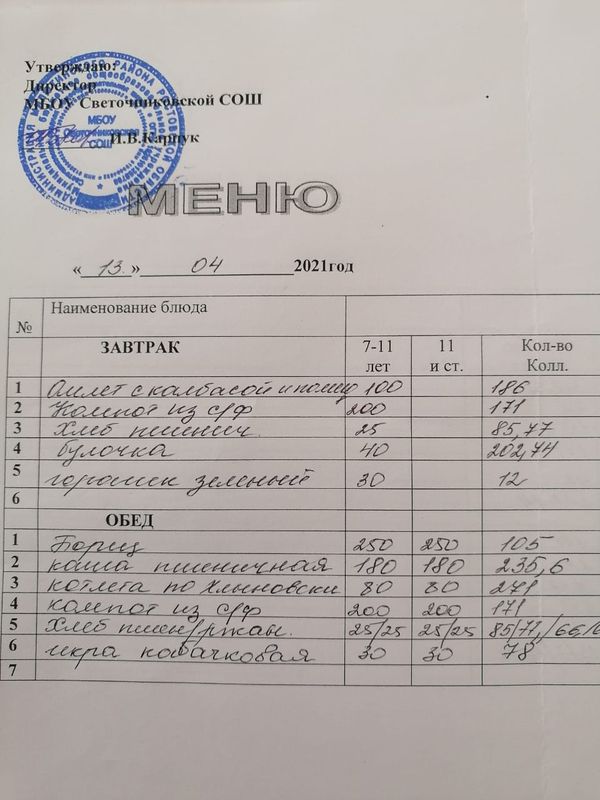 Утверждаю:
Директор
МБОУ Светочниковской СОШ
И.В.Карпук
МБОУ
Светочниковская
СОШ
МЕНЮ
« 13. » 04 2021год
№ Наименование блюда
ЗАВТРАК 7-11 лет 11 и ст. Кол-во Колл.
1 Омлет с колбасой и помид 100 186
2 Компот из с/ф 200 171
3 Хлеб пшенич. 25 85,77
4 булочка 40 202,74
5 горошек зеленый 30 12
6
ОБЕД
1 Борщ 250 250 105
2 каша пшеничная 180 180 235,6
3 котлета по Хлыновски 80 80 271
4 компот из с/ф 200 200 171
5 Хлеб пшен/ржан. 25/25 25/25
6 икра кабачковая 30 30 78
7